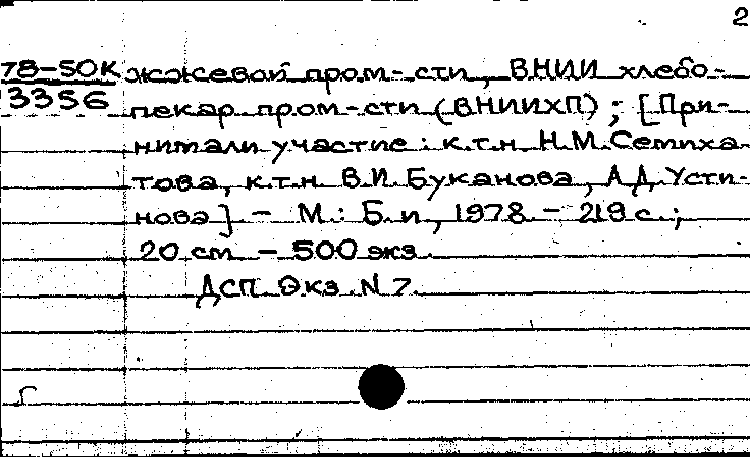 2
78-50К жжевой пром-сти, ВНИИ хлебо-
3356 пекар. пром-сти (ВНИИХП); [При-
нимали участие: к.т.н. Н.М. Семиха-
това, к.т.н. В.И. Буканова, А.Д. Усти-
нова] - М.: Б.и, 1978 - 219 с.;
20 см - 500 экз.
ДСП Экз. N 7.